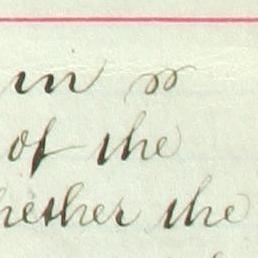 in
of the
hether the